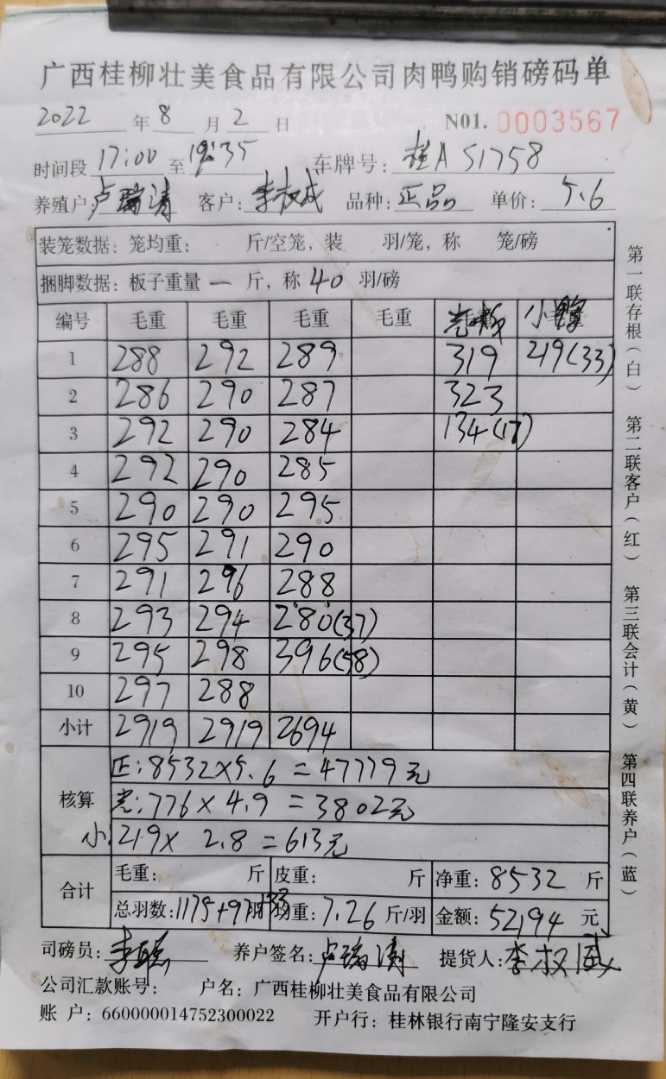 广西桂柳壮美食品有限公司肉鸭购销磅码单
2022 年 8 月 2 日 NO1. 0003567
时间段 17:00 至 19:35 车牌号: 桂A S1758
养殖户 卢瑞涛 客户: 李权威 品种: 正品 单价: 5.6
装笼数据: 笼均重: 斤/空笼, 装 羽/笼, 称 笼/磅
捆脚数据: 板子重量 一 斤, 称 40 羽/磅
编号 毛重 毛重 毛重 毛重 光板 小鸭
1 288 292 289 319 219(33)
2 286 290 287 323
3 292 290 284 134(17)
4 292 290 285
5 290 290 295
6 295 291 290
7 291 296 288
8 293 294 280(37)
9 295 298 396(58)
10 297 288
小计 2919 2919 2694
核算
正:8532×5.6=47779元
光:776×4.9=3802元
小.219×2.8=613元
合计
毛重: 斤 皮重: 斤 净重: 8532 斤
总羽数: 1175+97+33 均重: 7.26 斤/羽 金额: 52194 元
司磅员: 养户签名: 卢瑞涛 提货人: 李权威
公司汇款账号: 户名: 广西桂柳壮美食品有限公司
账 户: 660000014752300022 开户行: 桂林银行南宁隆安支行
第一联存根(白) 第二联客户(红) 第三联会计(黄) 第四联养户(蓝)